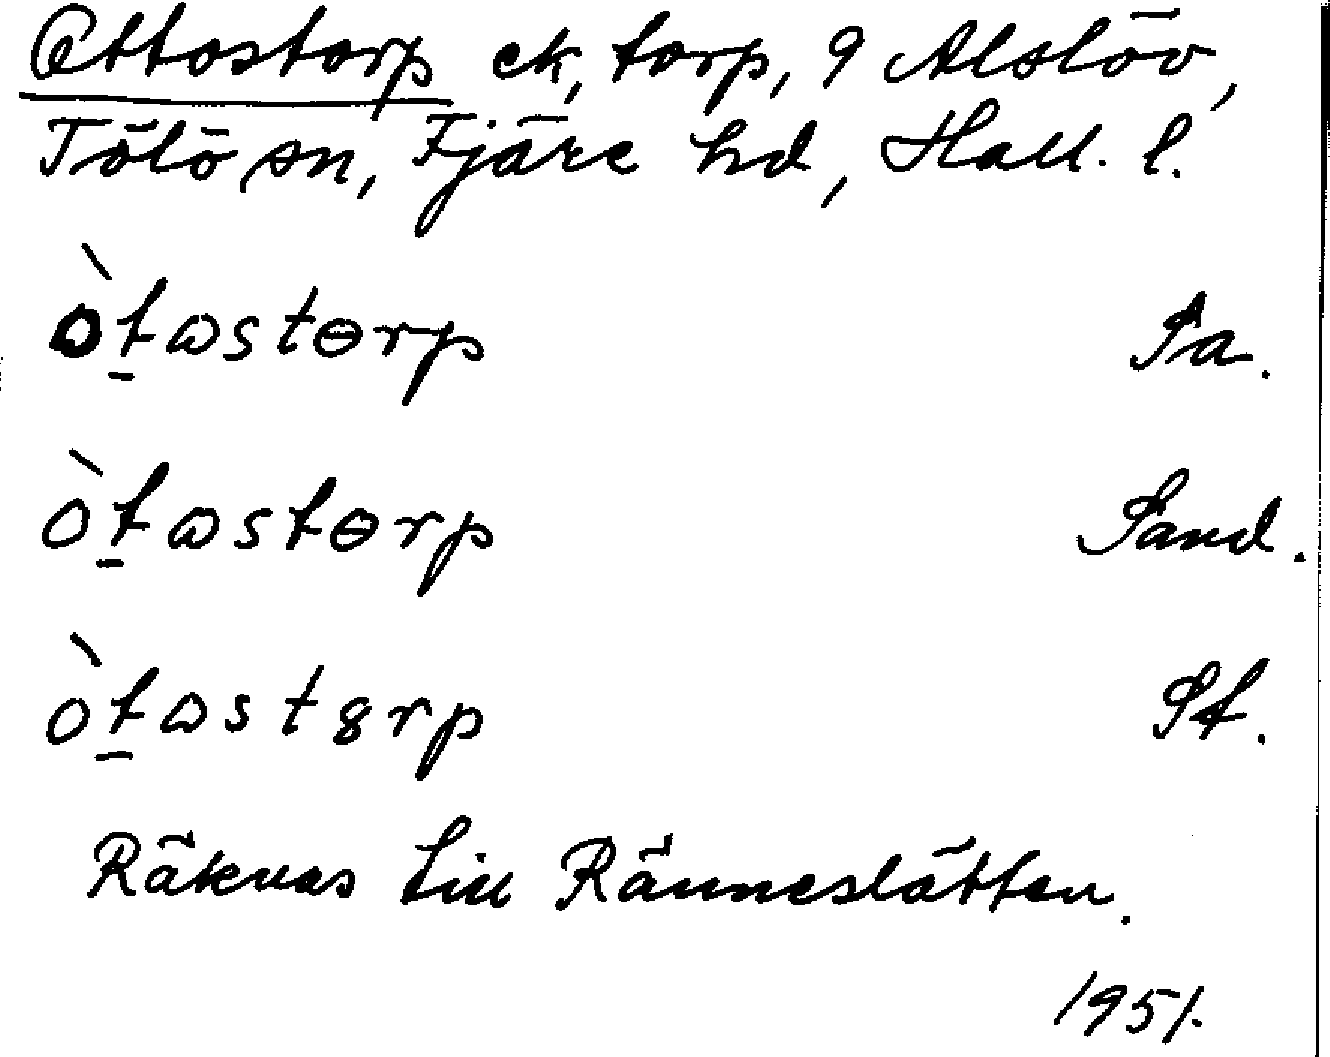 Ottostorp ek, torp, 9 Alslöv,
Tölö sn, Fjäre hd, Hall. l.
òt̠ωstɵrp Sa.
òt̠ωstɵrp Sand.
òt̠ωst8rp St.
Räknas till Ränneslätten.
1951.